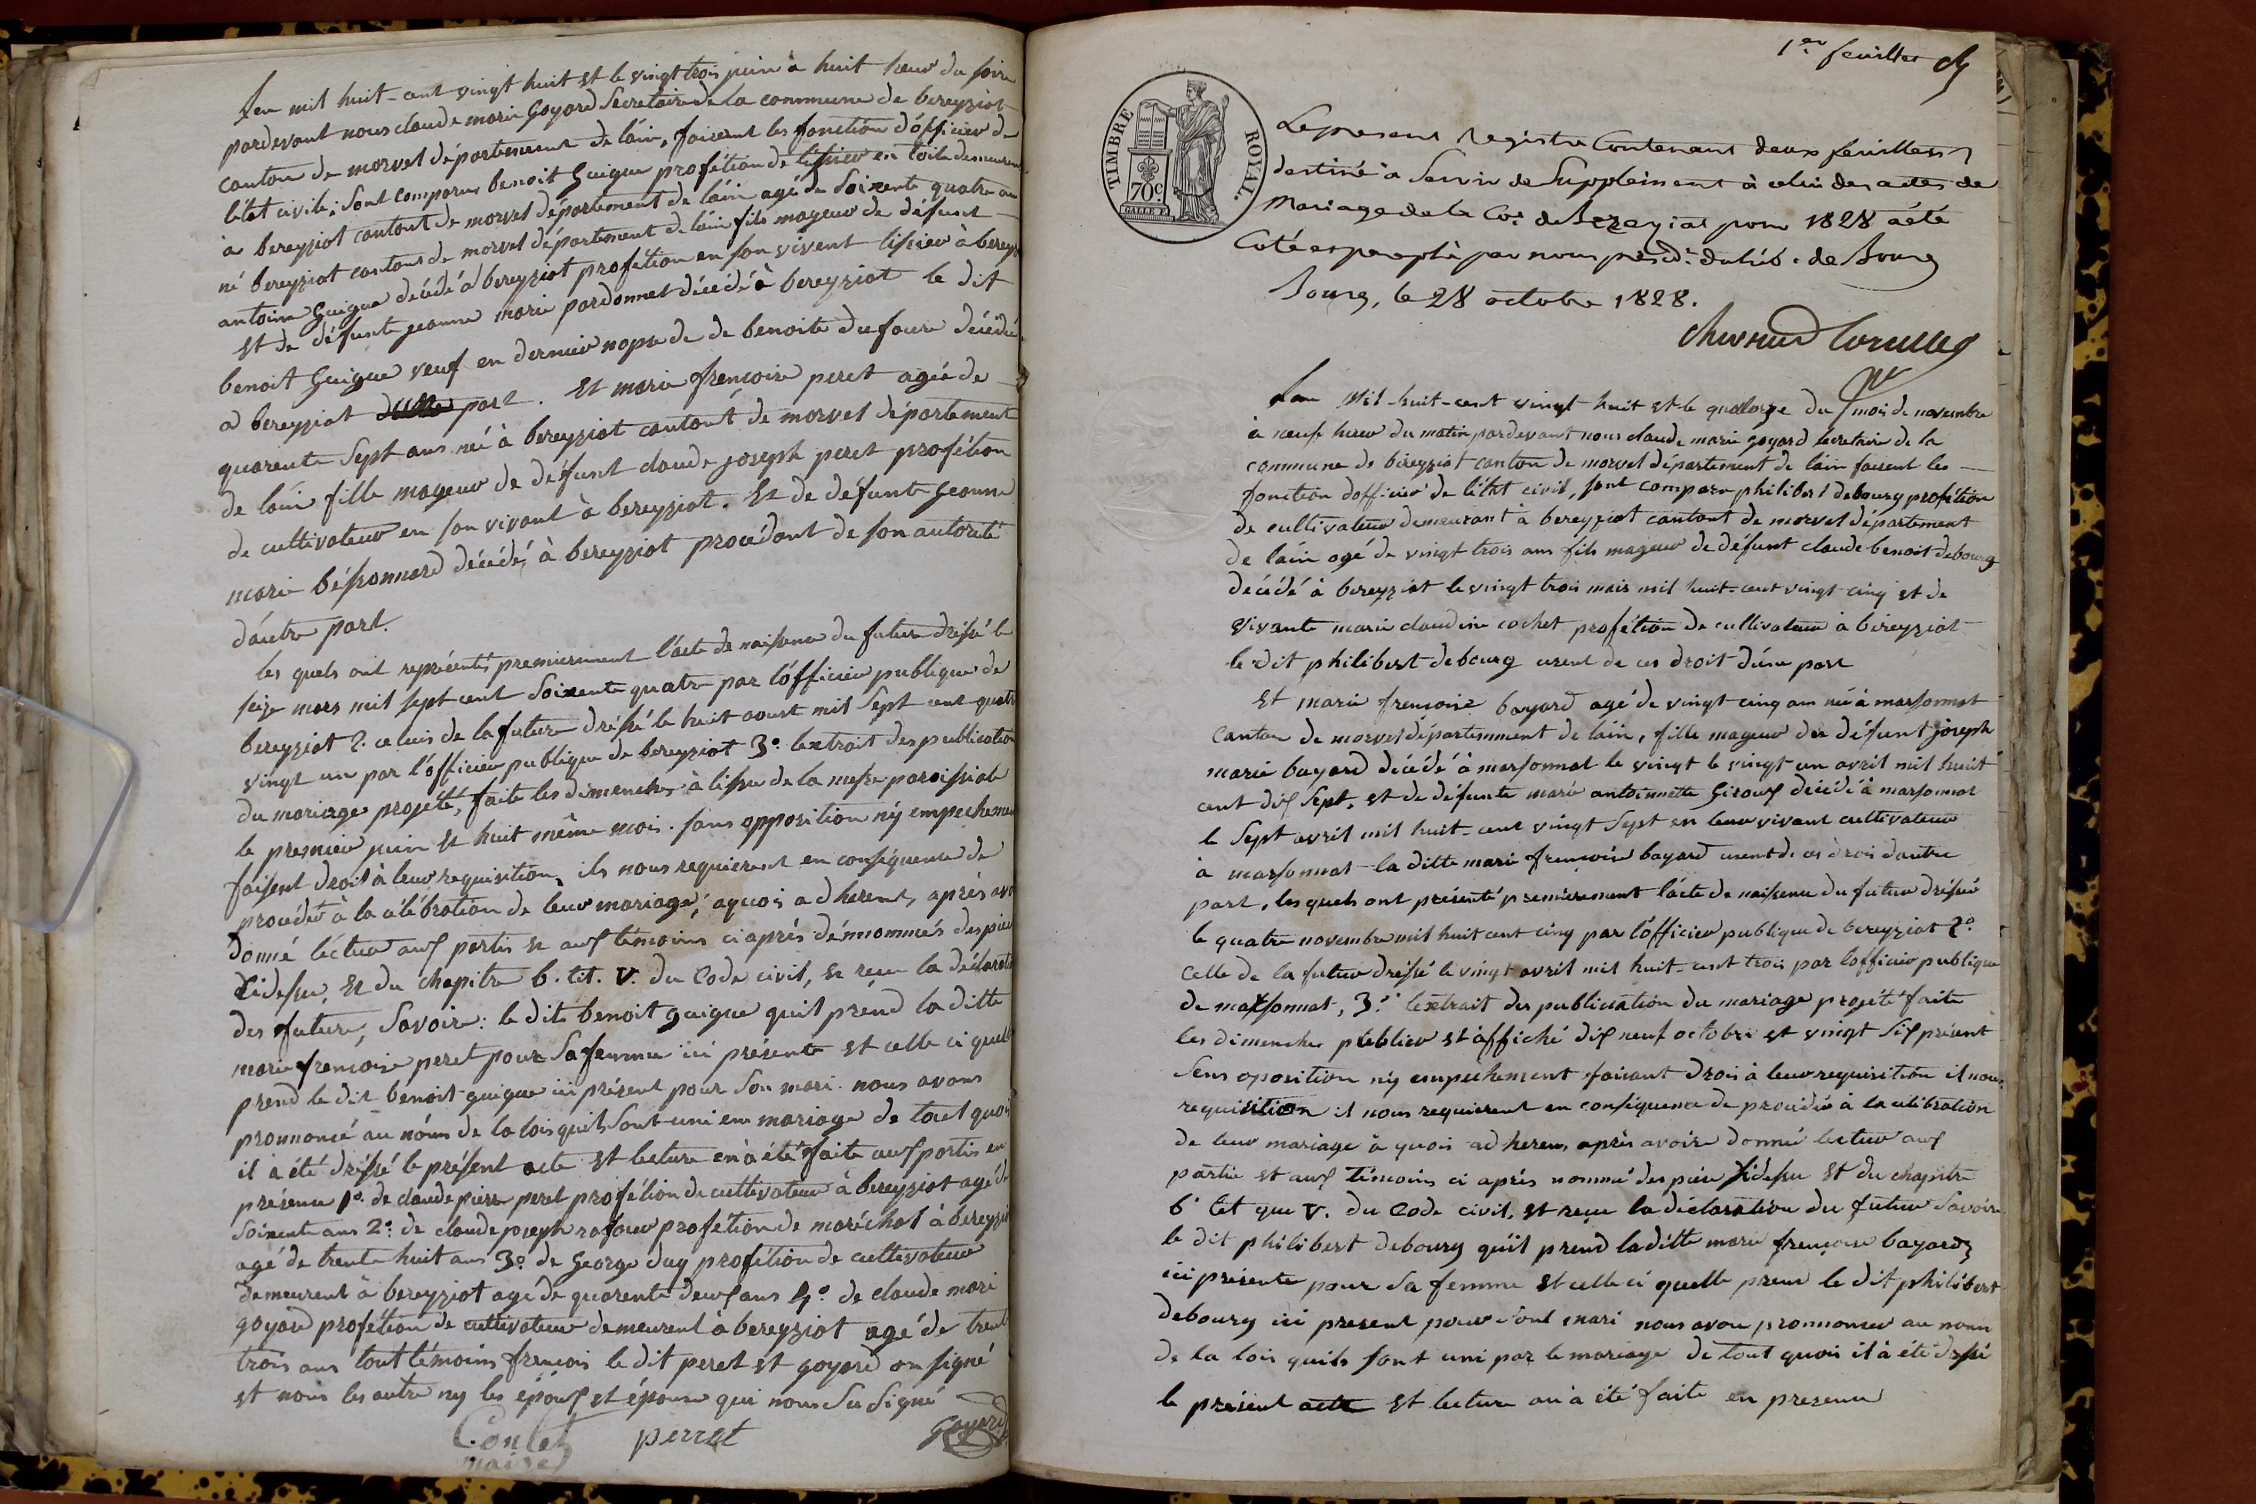 Lan mil huit-cent vingt huit et le vingt trois juin à huit heur du soire
pardevant nous claude marie Goyard Secretaire de la commune de bereyziat
canton de marvel département de láin, faisent les fonction dófficier de
létat civile; sont comparus benoit Guigue profétion de tissier en toile demeurent
à bereyziat cantont de morvel département de láin agé de Soixente quatre ans
né bereyziat cantont de morvel département de láin, fils mageur de défunt
antoine Guigue décédé á bereyziat profétion en son vivent tissier à bereyziat
et de défunte jeanne marie pardonnet décédé à bereyziat le dit
benoit Guigue veuf en dernier nopse de de benoite dufoure décédé
a bereyziat part. Et marie frençoise peret agée de
quarente Sept ans né à bereyziat cantont de morvel département
de láin fille mageur de défunt claude joseph peret profétion
de cultivateur en son vivant à bereyziat. Et de défunte jeanne
marie béssonnard décédé, à bereyziat procédant de son autorité
dáutre part.
les quels ont représenté premierement lácte de naissence du future dréssé le
seize mars mil sept cent Soixente quatre par lófficier publique de
bereyziat 2º celuis de la future dréssé le huit aoust mil Sept cent quatre
vingt un par l'officier publique de bereyziat 3º lextrait des publication
du mariage projété, faite les dimenches à lissue de la messe paroissiale
le premier juin et huit même mois. sans opposition ny empechement
faisent droit à leur requisition, ils nous requierent en conséquence de
procédér à la célébration de leur mariage, aquois adherent, aprés avoir
donné lécteur aux partis et aux témoins ci aprés dénnommés des pieces
cidessu, Et du chapitre 6. tit. V. du Code civil, et reçu la déclaration
des future, Savoir: le dits benoit guigue quil prend la ditte
marie frencoise peret pour Sa femme ici présente et celle ci quelle
prend le dit benoit guigue ici présent pour Son mari. nous avons
pronnoncé au nóm de la lois quils Sont uni em mariage de tout quois
il à été dréssé le présent acte et lecture en à été faite aux partis en
présence 1º de claude pierre peret profétion de cultivateur à bereyziat agé de
Soixente ans 2º de claude joseph profétion de maréchal à bereyziat
agé de trente huit ans 3º de George duy profétion de cultivateur
demeurent à bereyziat agé de quarente deux ans 4º de claude marie
goyard profétion de cultivateur demeurent a bereyziat agé de trente
trois ans tout témoins frencois le dit peret et goyard on signé
et nous les autre ny les époux et épouse qui nous Su Signé
Contet perret Goyard
maire
1er feuillet
Le présent Registre Contenant deux feuillets
destiné à Servir de Supplément à celui des actes de
Mariage de la Cne de Bezeyiat pour 1828 a été
Coté et paraphé par nous présidt. du trib. de Bourg
Bourg, le 28 octobre 1828.
TIMBRE ROYAL.
70c
Lan Mil huit-cent vingt huit et le quatorze du mois de novembre
à neuf heur du matin pardevant nous claude marie goyard secretaire de la
commune de béreyziat canton de morvel département de láin faisent les
fonction dofficier de létat civil, sont comparu philibert debourg profétion
de cultivateur demeurant à bereyziat cantont de morvel département
de láin agé de vingt trois ans fils mageur de défunt claude benoit debourg
décédé à bereyziat le vingt trois mais mil huit-cent vingt cinq et de
vivante marie claudine cochet profétion de cultivateur à béreyziat
le dit philibert debourg usent de ces droit dúne part
Et marie frençoise bayard agé de vingt cinq ans né à marsonnat
canton de morvel département de láin, fille mageur de défunt joseph
marie bayard décédé à marsonnat le vingt le vingt un avril mil huit
cent dix Sept, et de défunte marie antoinnette Giroux décédé à marsonnat
le Sept avril mil huit-cent vingt Sept en leur vivant cultivateur
à marsonnat la ditte marie frençoise bayard usent de ces drois dautre
part, les quels ont présenté premièrement lácte de naissence du futur dréssé
le quatre novembre mil huit cent cinq par lófficier publique de bereyziat 2º
celle de la futur dréssé le vingt avril mil huit-cent trois par lofficier publique
de marsonnat, 3º lextrait des publication du mariage projété faite
les dimenches publier et affiché dix neuf octobre et vingt six présent
sens oposition ny empechement faisant drois à leur requisition il nous
requisition il nous requierent en conséquence de procédér à la célébration
de leur mariage à quois adherens, aprés avoire donné lecteur aux
partie et aux témoins ci aprés nommé des piéce cidessu et du chapitre
6 tit que V. du Code civil, et reçu la déclaration du futur Savoire
le dit philibert debourg quil prend la ditte marie frençoise bayard
ici présente pour Sa femme et celle ci quelle prend le dit philibert
debourg ici present pour sont mari nous avon pronnoncer au nom
de la lois quils sont uni par le mariage de tout quois il à été dréssé
le présent acte et lecture an à été faite en presence